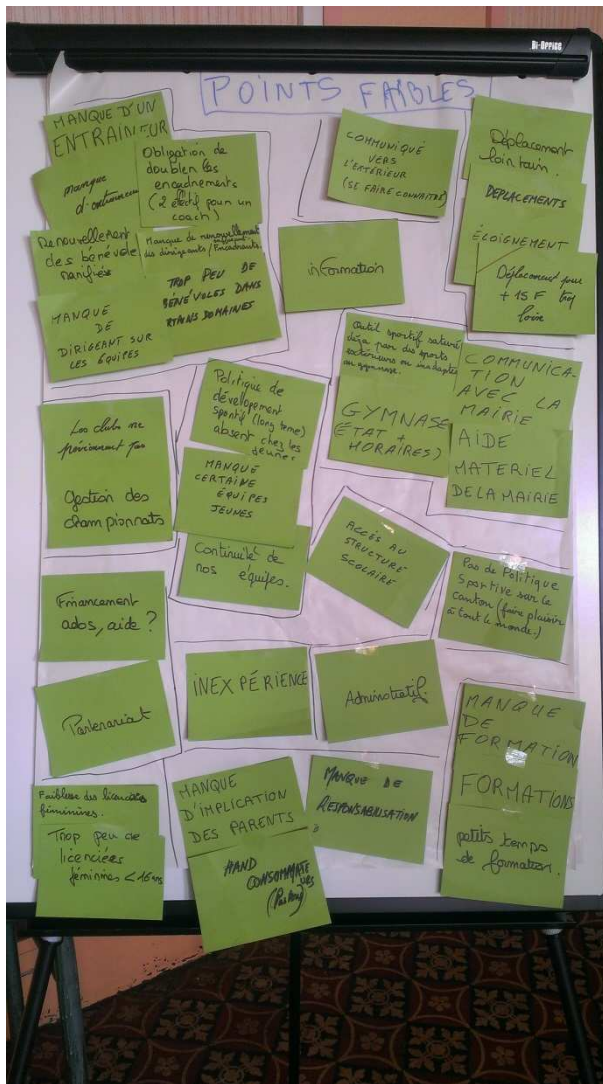 Bi-Office
POINTS FAIBLES
MANQUE D'UN
ENTRAINEUR
manque
Obligation de
doubler les
encadrements
coach)
Renouvellement
des bénévoles
Manque de renouvellement
des dirigeants / Encadrants.
MANQUE
DE
DIRIGEANT SUR
LES ÉQUIPES
TROP PEU DE
BÉNÉVOLES DANS
DOMAINES
COMMUNIQUÉ
VERS
L'EXTÉRIEUR
(SE FAIRE CONNAITRE)
information
Déplacement
lointain.
DEPLACEMENTS
ÉLOIGNEMENT
Déplacement pour
+ 15 F trop
loin
Outil sportif saturé
déjà par des sports
extérieurs ou inadaptés
au gymnase.
GYMNASE
(ÉTAT +
HORAIRES)
COMMUNICA-
TION
AVEC LA
MAIRIE
AIDE
MATERIEL
DE LA MAIRIE
Les clubs ne
pas
Gestion des
championnats
Politique de
dévelopement
sportif (long terme)
absent chez les
jeunes
MANQUE
CERTAINE
ÉQUIPES
JEUNES
Continuité de
nos équipes.
ACCÈS AU
STRUCTURE
SCOLAIRE
Pas de Politique
Sportive sur le
canton (faire plaisir
à tout le monde.)
Financement
ados, aide ?
Partenariat
INEXPÉRIENCE
Administratif.
MANQUE
DE
FORMATION
FORMATIONS
petits temps
de formation.
Faiblesse des licenciées
féminines.
Trop peu de
licenciées
féminines < 16 ans
MANQUE
D'IMPLICATION
DES PARENTS
HAND
CONSOMMATEURS
MANQUE DE
RESPONSABILISATION